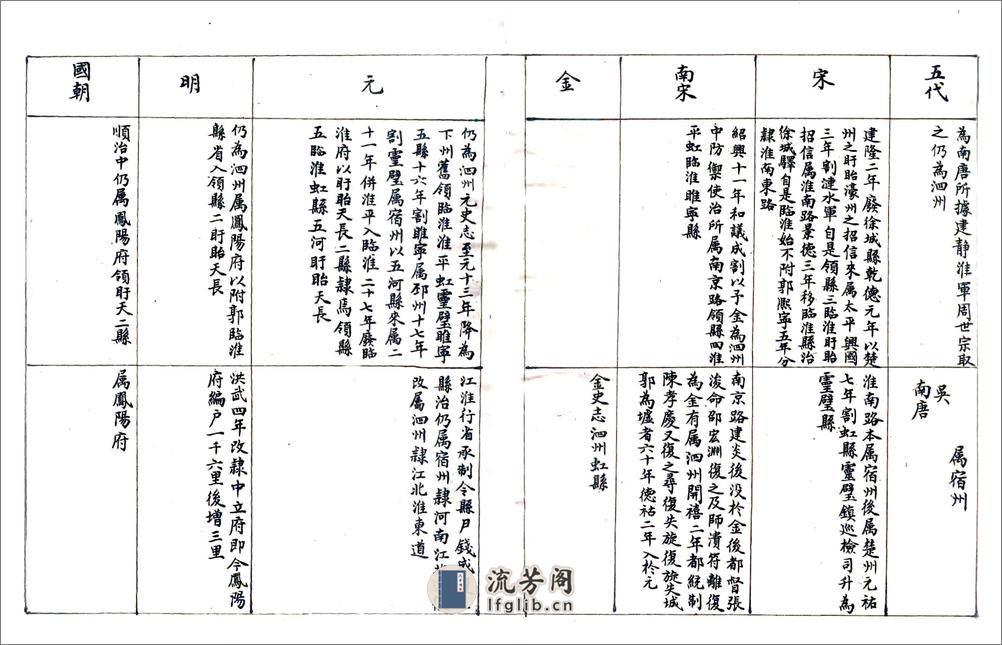 五代
為南唐所據建静淮軍周世宗取
之仍為泗州
吳
南唐
属宿州
宋
建隆二年廢徐城縣乾德元年以楚
州之盱眙濠州之招信來属太平興國
三年割漣水軍自是領縣三臨淮盱眙
招信属淮南路景德三年移臨淮縣治
徐城驛自是臨淮始不附郭熙寧五年分
隸淮南東路
淮南路本属宿州後属楚州元祐
七年割虹縣靈璧鎮巡檢司升為
靈璧縣
南宋
紹興十一年和議成割以予金為泗州
中防禦使治所属南京路領縣四淮
平虹臨淮睢寧縣
南京路建炎後没於金後都督張
浚命邵宏淵復之及師潰符離復
為金有属泗州開禧二年都統制
陳孝慶又復之尋復失旋復旋失城
郭為墟者六十年德祐二年入於元
金
金史志泗州虹縣
元
仍為泗州元史志至元十三年降為
下州舊領臨淮淮平虹靈璧睢寧
五縣十六年割睢寧属邳州十七年
割靈璧属宿州以五河縣來属二
十一年併淮平入臨淮二十七年廢臨
淮府以盱眙天長二縣隸焉領縣
五臨淮虹縣五河盱眙天長
江淮行省承制令縣尸錢成
縣治仍属宿州隸河南江北
改属泗州隸江北淮東道
明
仍為泗州属鳳陽府以附郭臨淮
縣省入領縣二盱眙天長
洪武四年改隸中立府即今鳳陽
府編户一千六里後增三里
國朝
順治中仍属鳳陽府領盱天二縣
属鳳陽府
流芳阁
lfglib.cn